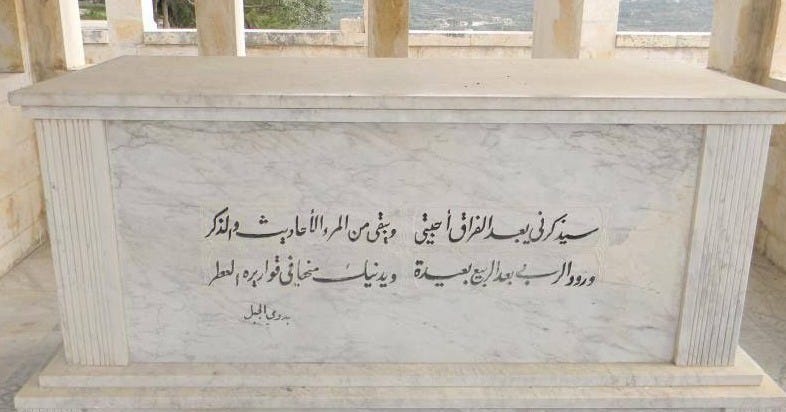 سيذكرني بعد الفراق أحبتي ويبقى من المرء الأحاديث والذكر
ورود الربى بعد الربيع بعيدة ويدنيك منها في قواريره العطر
بدوي الجبل